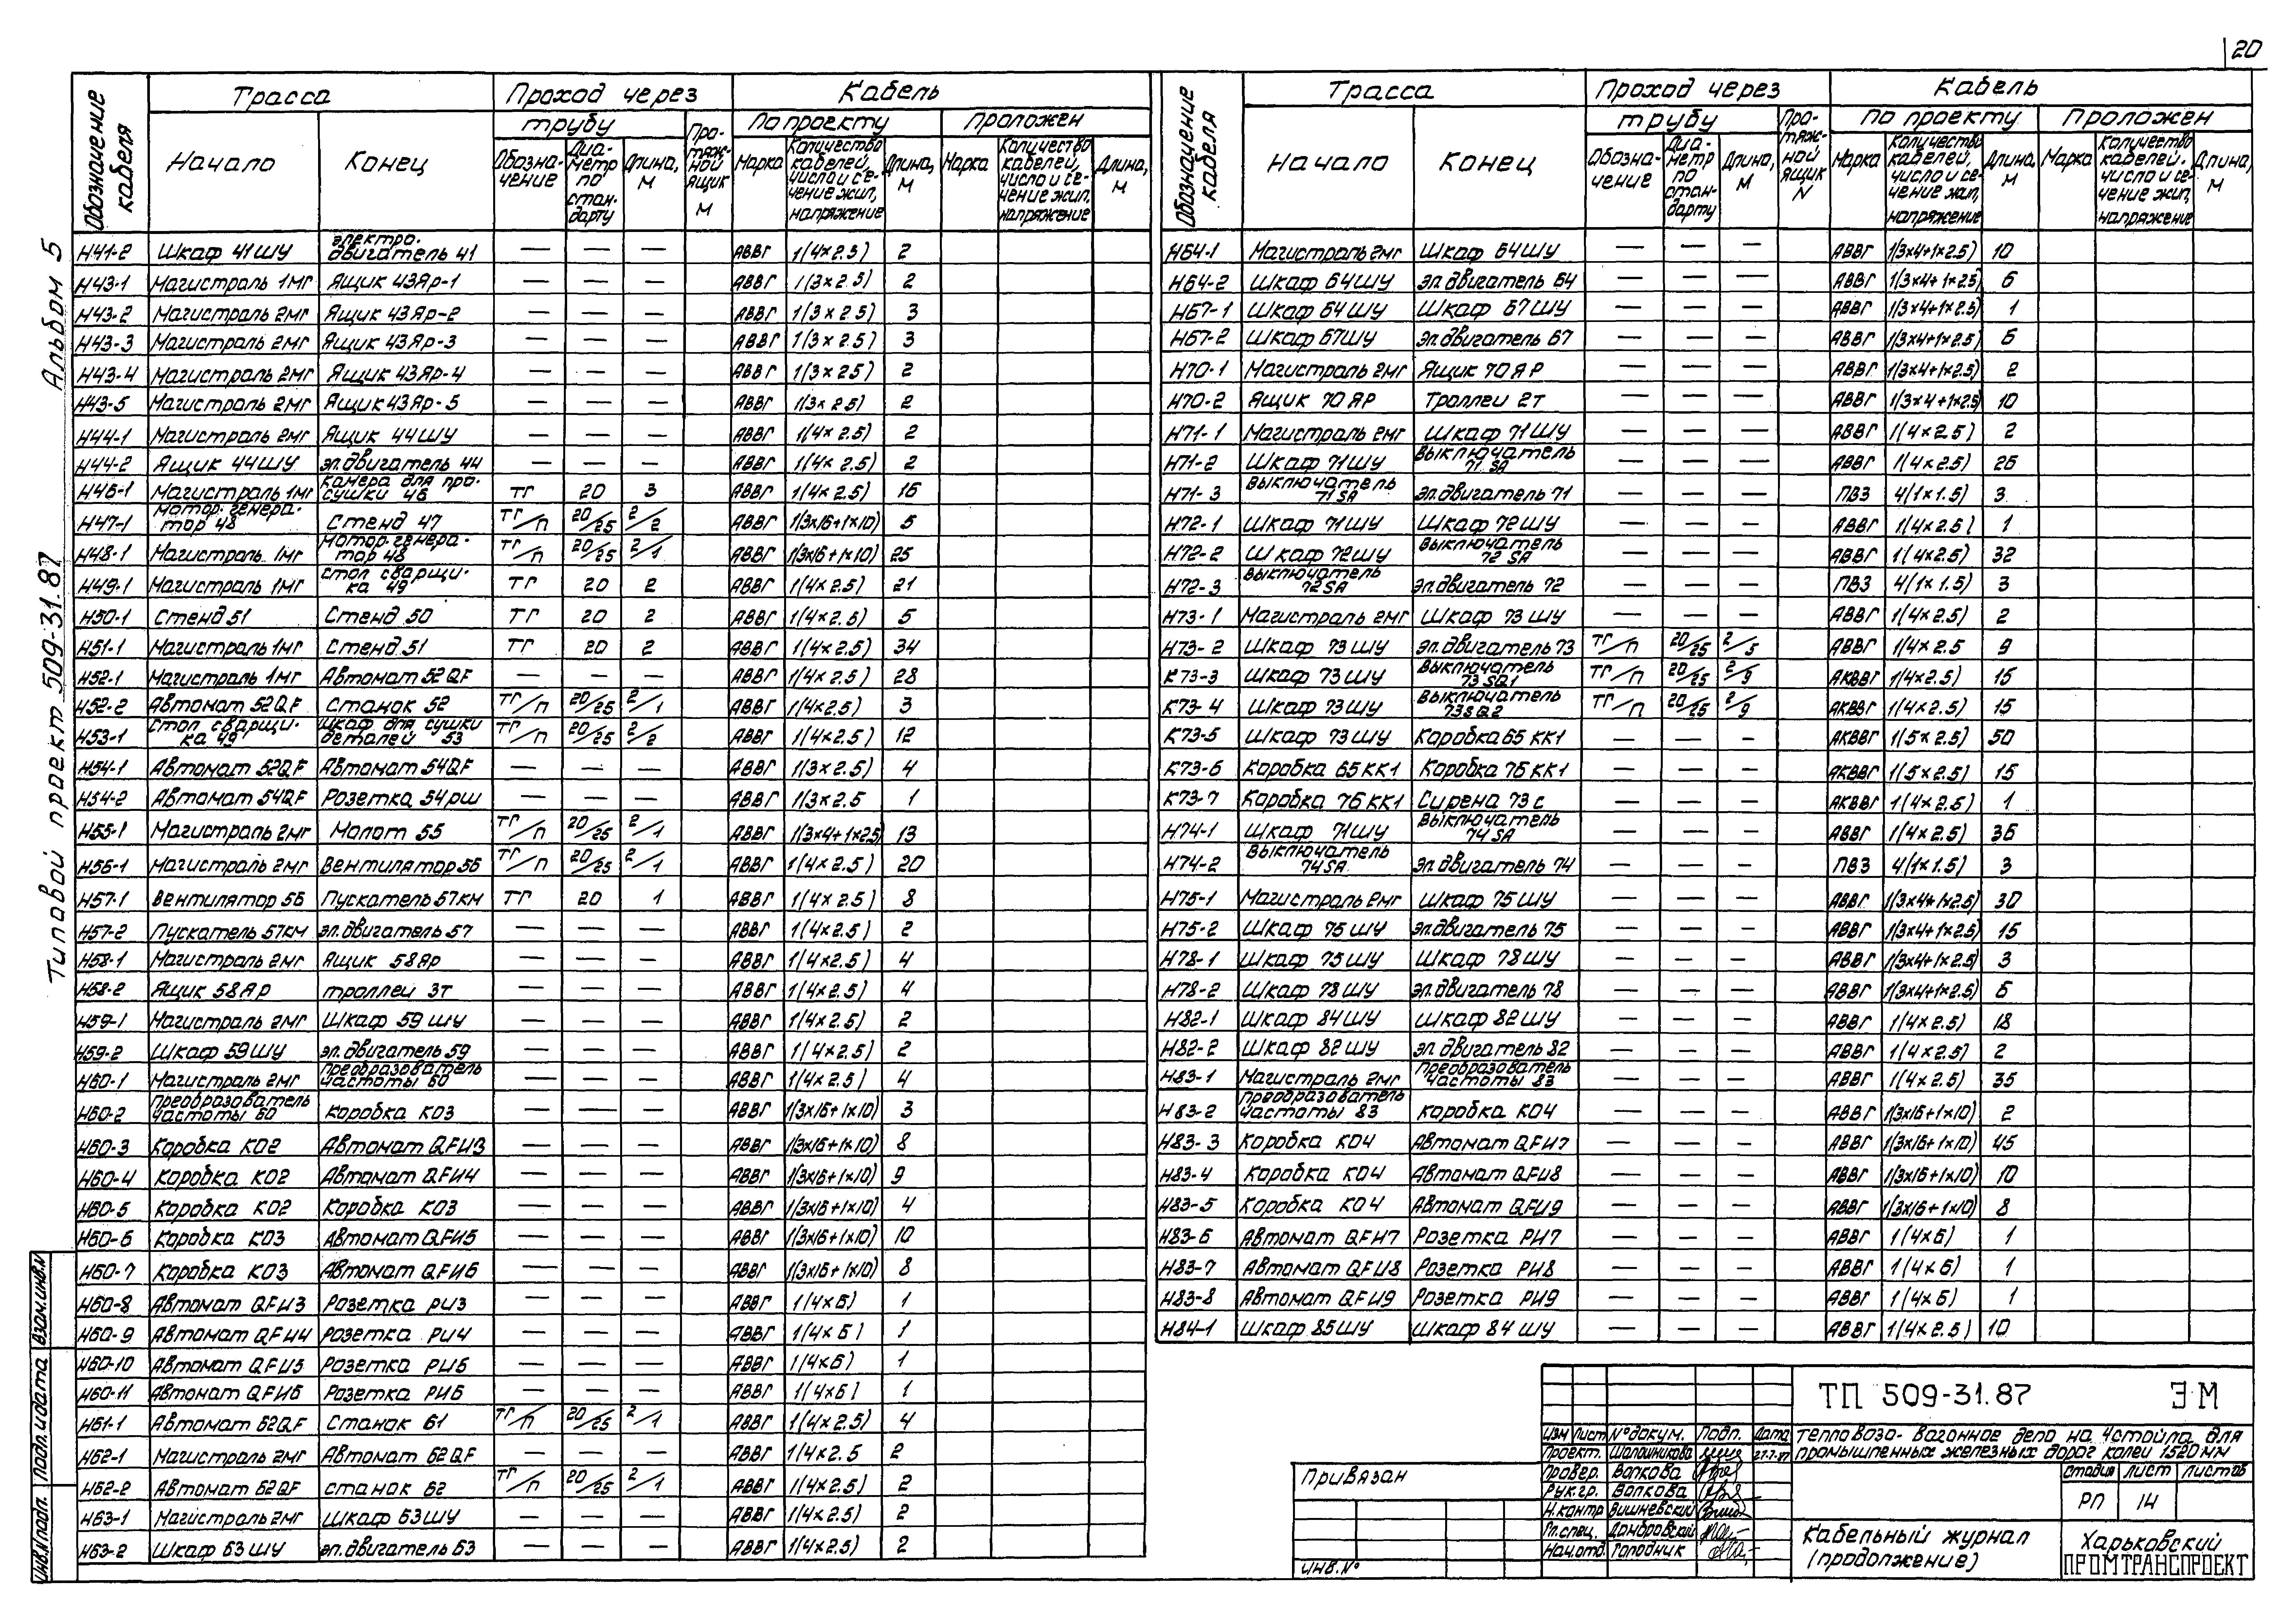 20
Альбом 5
Типовой проект 509-31.87
Обозначение кабеля | Трасса | Проход через | Кабель
трубу | Протяжной ящик М | По проекту | Проложен
Начало | Конец | Обозначение | Диаметр по стандарту | Длина, м | Марка | Количество кабелей, число и сечение жил, напряжение | Длина, м | Марка | Количество кабелей, число и сечение жил, напряжение | Длина, м
Н41-2 Шкаф 41ШУ электродвигатель 41 — — — АВВГ 1(4×2.5) 2
Н43-1 Магистраль 1МГ Ящик 43Яр-1 — — — АВВГ 1(3×2.5) 2
Н43-2 Магистраль 2МГ Ящик 43Яр-2 — — — АВВГ 1(3×2.5) 3
Н43-3 Магистраль 2МГ Ящик 43Яр-3 — — — АВВГ 1(3×2.5) 3
Н43-4 Магистраль 2МГ Ящик 43Яр-4 — — — АВВГ 1(3×25) 2
Н43-5 Магистраль 2МГ Ящик 43Яр-5 — — — АВВГ 1(3×2.5) 2
Н44-1 Магистраль 2МГ Ящик 44ШУ — — — АВВГ 1(4×2.5) 2
Н44-2 Ящик 44ШУ эл.двигатель 44 — — — АВВГ 1(4×2.5) 2
Н46-1 Магистраль 1МГ Камера для просушки 46 ТГ 20 3 АВВГ 1(4×2.5) 16
Н47-1 Мотор-генератор 48 Стенд 47 ТГ/П 20/25 2/2 АВВГ 1(3×16+1×10) 5
Н48-1 Магистраль 1МГ Мотор-генератор 48 ТГ/П 20/25 2/1 АВВГ 1(3×16+1×10) 25
Н49-1 Магистраль 1МГ Стол сварщика 49 ТГ 20 2 АВВГ 1(4×2.5) 21
Н50-1 Стенд 51 Стенд 50 ТГ 20 2 АВВГ 1(4×2.5) 5
Н51-1 Магистраль 1МГ Стенд 51 ТГ 20 2 АВВГ 1(4×2.5) 34
Н52-1 Магистраль 1МГ Автомат 52QF — — — АВВГ 1(4×2.5) 28
Н52-2 Автомат 52QF Станок 52 ТГ/П 20/25 2/1 АВВГ 1(4×2.5) 3
Н53-1 Стол сварщика 49 Шкаф для сушки деталей 53 ТГ/П 20/25 2/2 АВВГ 1(4×2.5) 12
Н54-1 Автомат 52QF Автомат 54QF — — — АВВГ 1(3×2.5) 4
Н54-2 Автомат 54QF Розетка 54рш — — — АВВГ 1(3×2.5 1
Н55-1 Магистраль 2МГ Молот 55 ТГ/П 20/25 2/1 АВВГ 1(3×4+1×2.5) 13
Н56-1 Магистраль 2МГ Вентилятор 56 ТГ/П 20/25 2/1 АВВГ 1(4×2.5) 20
Н57-1 Вентилятор 56 Пускатель 57КМ ТГ 20 1 АВВГ 1(4×2.5) 8
Н57-2 Пускатель 57КМ эл.двигатель 57 — — — АВВГ 1(4×2.5) 2
Н58-1 Магистраль 2МГ Ящик 58Яр — — — АВВГ 1(4×2.5) 4
Н58-2 Ящик 58Яр троллеи 3т — — — АВВГ 1(4×2.5) 4
Н59-1 Магистраль 2МГ Шкаф 59ШУ — — — АВВГ 1(4×2.5) 2
Н59-2 Шкаф 59ШУ эл.двигатель 59 — — — АВВГ 1(4×2.5) 2
Н60-1 Магистраль 2МГ Преобразователь частоты 60 — — — АВВГ 1(4×2.5) 4
Н60-2 Преобразователь частоты 60 коробка К03 — — — АВВГ 1(3×16+1×10) 3
Н60-3 Коробка К02 Автомат QFИ3 — — — АВВГ 1(3×16+1×10) 8
Н60-4 Коробка К02 Автомат QFИ4 — — — АВВГ 1(3×16+1×10) 9
Н60-5 Коробка К02 Коробка К03 — — — АВВГ 1(3×16+1×10) 4
Н60-6 Коробка К03 Автомат QFИ5 — — — АВВГ 1(3×16+1×10) 10
Н60-7 Коробка К03 Автомат QFИ6 — — — АВВГ 1(3×16+1×10) 8
Н60-8 Автомат QFИ3 Розетка РИ3 — — — АВВГ 1(4×6) 1
Н60-9 Автомат QFИ4 Розетка РИ4 — — — АВВГ 1(4×6) 1
Н60-10 Автомат QFИ5 Розетка РИ6 — — — АВВГ 1(4×6) 1
Н60-11 Автомат QFИ6 Розетка РИ6 — — — АВВГ 1(4×6) 1
Н61-1 Автомат 62QF Станок 61 ТГ/П 20/25 2/1 АВВГ 1(4×2.5) 4
Н62-1 Магистраль 2МГ Автомат 62QF — — — АВВГ 1(4×2.5 2
Н62-2 Автомат 62QF станок 62 ТГ/П 20/25 2/1 АВВГ 1(4×2.5) 2
Н63-1 Магистраль 2МГ Шкаф 63ШУ — — — АВВГ 1(4×2.5) 2
Н63-2 Шкаф 63ШУ эл.двигатель 63 — — — АВВГ 1(4×2.5) 2
Обозначение кабеля | Трасса | Проход через | Кабель
трубу | Протяжной ящик N | По проекту | Проложен
Начало | Конец | Обозначение | Диаметр по стандарту | Длина, м | Марка | Количество кабелей, число и сечение жил, напряжение | Длина, м | Марка | Количество кабелей, число и сечение жил, напряжение | Длина, м
Н64-1 Магистраль 2МГ Шкаф 64ШУ — — — АВВГ 1(3×4+1×2.5) 10
Н64-2 Шкаф 64ШУ эл.двигатель 64 — — — АВВГ 1(3×4+1×2.5) 6
Н67-1 Шкаф 64ШУ Шкаф 67ШУ — — — АВВГ 1(3×4+1×2.5) 1
Н67-2 Шкаф 67ШУ эл.двигатель 67 — — — АВВГ 1(3×4+1×2.5) 6
Н70-1 Магистраль 2МГ Ящик 70ЯР — — — АВВГ 1(3×4+1×2.5) 2
Н70-2 Ящик 70ЯР Троллеи 2т — — — АВВГ 1(3×4+1×2.5) 10
Н71-1 Магистраль 2МГ Шкаф 71ШУ — — — АВВГ 1(4×2.5) 2
Н71-2 Шкаф 71ШУ Выключатель 71SA — — — АВВГ 1(4×2.5) 26
Н71-3 Выключатель 71SA эл.двигатель 71 — — — ПВ3 4(1×1.5) 3
Н72-1 Шкаф 71ШУ Шкаф 72ШУ — — — АВВГ 1(4×2.5) 1
Н72-2 Шкаф 72ШУ Выключатель 72SA — — — АВВГ 1(4×2.5) 32
Н72-3 Выключатель 72SA эл.двигатель 72 — — — ПВ3 4(1×1.5) 3
Н73-1 Магистраль 2МГ Шкаф 73ШУ — — — АВВГ 1(4×2.5) 2
Н73-2 Шкаф 73ШУ эл.двигатель 73 ТГ/П 20/25 2/5 АВВГ 1(4×2.5 9
К73-3 Шкаф 73ШУ Выключатель 73SQ1 ТГ/П 20/25 2/9 АКВВГ 1(4×2.5) 15
К73-4 Шкаф 73ШУ Выключатель 73SQ2 ТГ/П 20/25 2/9 АКВВГ 1(4×2.5) 15
К73-5 Шкаф 73ШУ Коробка 65КК1 — — — АКВВГ 1(5×2.5) 50
К73-6 Коробка 65КК1 Коробка 76КК1 — — — АКВВГ 1(5×2.5) 15
К73-7 Коробка 76КК1 Сирена 73с — — — АКВВГ 1(4×2.5) 1
Н74-1 Шкаф 71ШУ Выключатель 74SA — — — АВВГ 1(4×2.5) 36
Н74-2 Выключатель 74SA эл.двигатель 74 — — — ПВ3 4(1×1.5) 3
Н75-1 Магистраль 2МГ Шкаф 75ШУ — — — АВВГ 1(3×4+1×2.5) 30
Н75-2 Шкаф 75ШУ эл.двигатель 75 — — — АВВГ 1(3×4+1×2.5) 15
Н78-1 Шкаф 75ШУ Шкаф 78ШУ — — — АВВГ 1(3×4+1×2.5) 3
Н78-2 Шкаф 78ШУ эл.двигатель 78 — — — АВВГ 1(3×4+1×2.5) 6
Н82-1 Шкаф 84ШУ Шкаф 82ШУ — — — АВВГ 1(4×2.5) 18
Н82-2 Шкаф 82ШУ эл.двигатель 82 — — — АВВГ 1(4×2.5) 2
Н83-1 Магистраль 2МГ Преобразователь частоты 83 — — — АВВГ 1(4×2.5) 35
Н83-2 Преобразователь частоты 83 коробка К04 — — — АВВГ 1(3×16+1×10) 2
Н83-3 Коробка К04 Автомат QFИ7 — — — АВВГ 1(3×16+1×10) 45
Н83-4 Коробка К04 Автомат QFИ8 — — — АВВГ 1(3×16+1×10) 10
Н83-5 Коробка К04 Автомат QFИ9 — — — АВВГ 1(3×16+1×10) 8
Н83-6 Автомат QFИ7 Розетка РИ7 — — — АВВГ 1(4×6) 1
Н83-7 Автомат QFИ8 Розетка РИ8 — — — АВВГ 1(4×6) 1
Н83-8 Автомат QFИ9 Розетка РИ9 — — — АВВГ 1(4×6) 1
Н84-1 Шкаф 85ШУ Шкаф 84ШУ — — — АВВГ 1(4×2.5) 10
Взам.инв.N
Подп. и дата
Инв.N подл.
Привязан
Инв.N°
ТП 509-31.87 ЭМ
Изм Лист N°докум. Подп. Дата
Проект. Шапошникова 27.7.87
Провер. Волкова
Рук.гр. Волкова
Н.контр Вишневский
Гл.спец. Домбровский
Нач.отд. Голодник
Тепловозо-вагонное депо на 4 стойла для
промышленных железных дорог колеи 1520мм
стадия лист листов
РП 14
Кабельный журнал
(продолжение)
Харьковский
ПРОМТРАНСПРОЕКТ